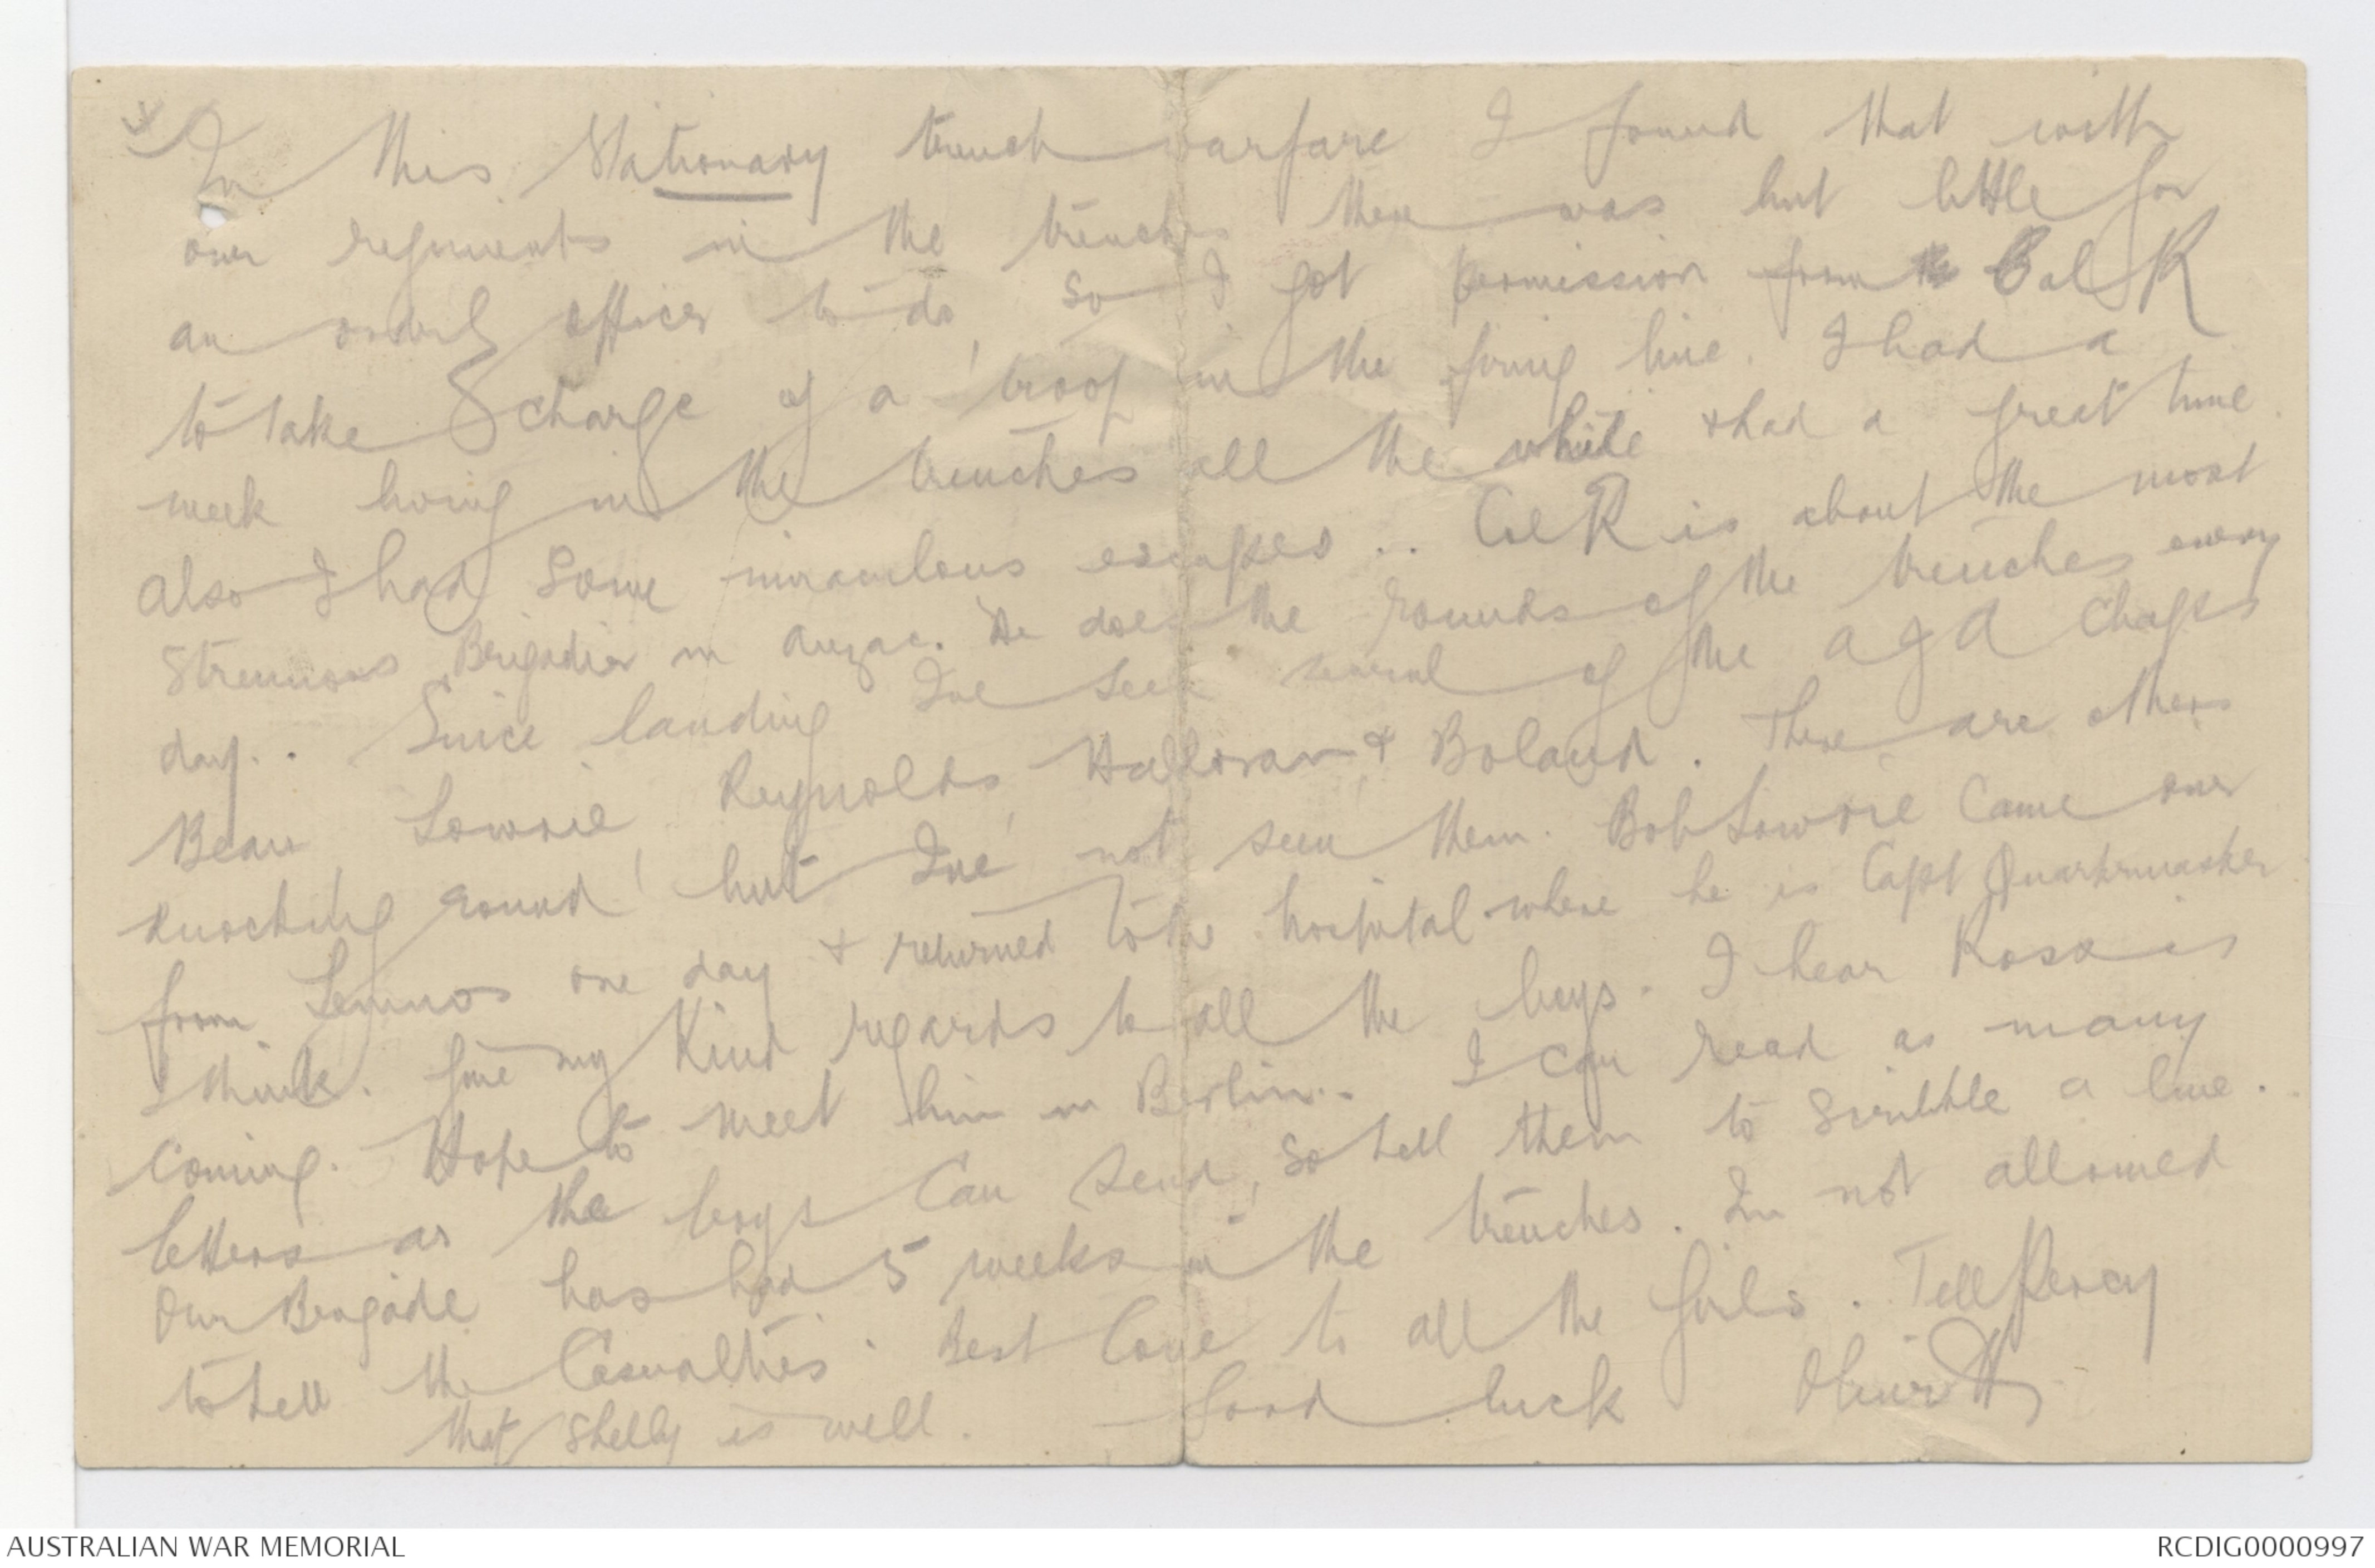 In this Stationary trench warfare I found that with
our regiments in the trenches there was but little for
an orderly officer to do, so I got permission from Col R
to take charge of a troop in the firing line. I had a
week living in the trenches all the while & had a great time.
Also I had some miraculous escapes .. Col R is about the most
strenuous Brigadier in Anzac. He does the rounds of the trenches every
day .. Since landing Ive seen several of the A G A Chaps
Beau, Lowrie, Reynolds, Halloran & Boland. There are others
knocking around but Ive not seen them. Bob Lowrie came over
from Lemnos one day & returned to the hospital where he is Capt Quartermaster
I think. Give my Kind regards to all the boys. I hear Ross is
coming. Hope to meet him in Berlin .. I can read as many
letters as the boys can send, so tell them to scribble a line.
Our Brigade has had 5 weeks in the trenches. Im not allowed
to tell the Casualties. Best Love to all the girls. Tell Percy
that Shelly is well. Good luck
AUSTRALIAN WAR MEMORIAL
RCDIG0000997